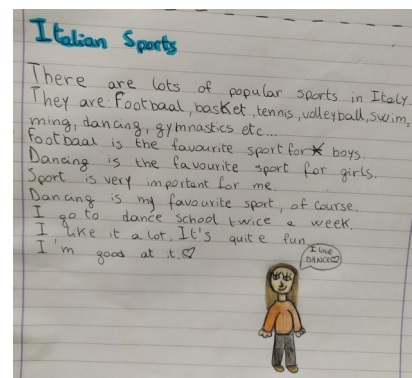 Italian Sports
There are lots of popular sports in Italy.
They are: Footbaal, basket, tennis, volleyball, swim-
ming, dancing, gymnastics etc...
Footbaal is the favourite sport for boys.
Dancing is the favourite sport for girls.
Sport is very important for me.
Dancing is my favourite sport, of course.
I go to dance school twice a week.
I like it a lot. It's quite fun
I'm good at it.♡
I LOVE
DANCE♡